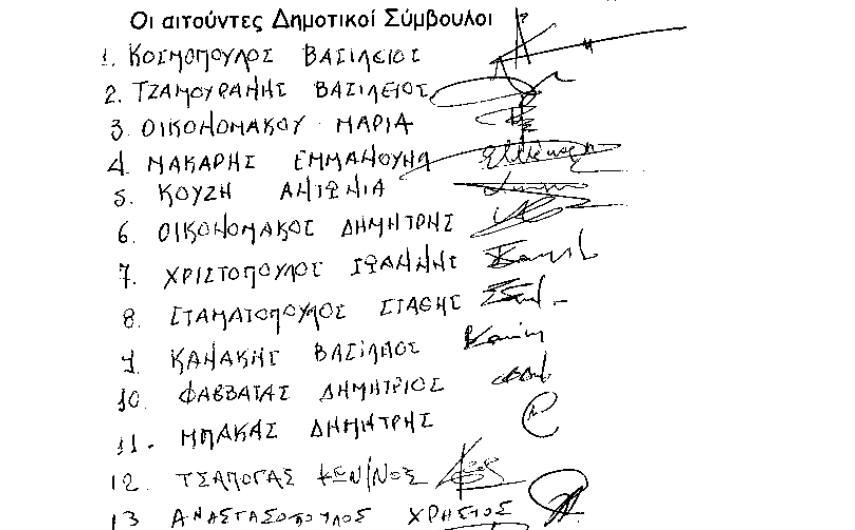 Οι αιτούντες Δημοτικοί Σύμβουλοι
1. ΚΟΣΜΟΠΟΥΛΟΣ ΒΑΣΙΛΕΙΟΣ
2. ΤΖΑΜΟΥΡΑΝΗΣ ΒΑΣΙΛΕΙΟΣ
3. ΟΙΚΟΝΟΜΑΚΟΥ ΜΑΡΙΑ
4. ΜΑΚΑΡΗΣ ΕΜΜΑΝΟΥΗΛ
5. ΚΟΥΖΗ ΑΝΤΩΝΙΑ
6. ΟΙΚΟΝΟΜΑΚΟΣ ΔΗΜΗΤΡΗΣ
7. ΧΡΙΣΤΟΠΟΥΛΟΣ ΙΩΑΝΝΗΣ
8. ΣΤΑΜΑΤΟΠΟΥΛΟΣ ΣΤΑΘΗΣ
9. ΚΑΝΑΚΗΣ ΒΑΣΙΛΕΙΟΣ
10. ΦΑΒΒΑΤΑΣ ΔΗΜΗΤΡΙΟΣ
11. ΜΠΑΚΑΣ ΔΗΜΗΤΡΗΣ
12. ΤΣΑΠΟΓΑΣ ΚΩΝ/ΝΟΣ
13 ΑΝΑΣΤΑΣΟΠΟΥΛΟΣ ΧΡΗΣΤΟΣ